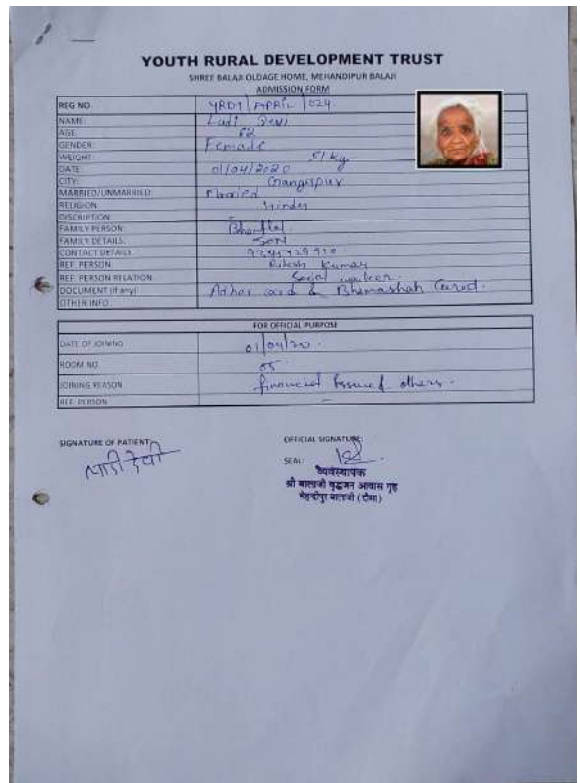 YOUTH RURAL DEVELOPMENT TRUST
SHREE BALAJI OLDAGE HOME, MEHANDIPUR BALAJI
ADMISSION FORM
REG NO. YRDT/APRIL/024
NAME: Ladi Devi
AGE:
GENDER: Female
WEIGHT: 51 kg
DATE: 01/04/2020
CITY: Gangapur
MARRIED/UNMARRIED: Married
RELIGION: Hindu
DISCRIPTION:
FAMILY PERSON
FAMILY DETAILS: Son
CONTACT DETAILS:
REF. PERSON Rikesh Kumar
REF. PERSON RELATION Social worker
DOCUMENT (if any) Adhar card & Bhamashah Card.
OTHER INFO.
FOR OFFICIAL PURPOSE
DATE OF JOINING 01/04/20.
ROOM NO. 05
JOINING REASON financial others.
REF. PERSON –
SIGNATURE OF PATIENT: लाडी देवी
OFFICIAL SIGNATURE:
SEAL:
व्यवस्थापक
श्री बालाजी वृद्धजन आवास गृह
मेहन्दीपुर बालाजी (दौसा)